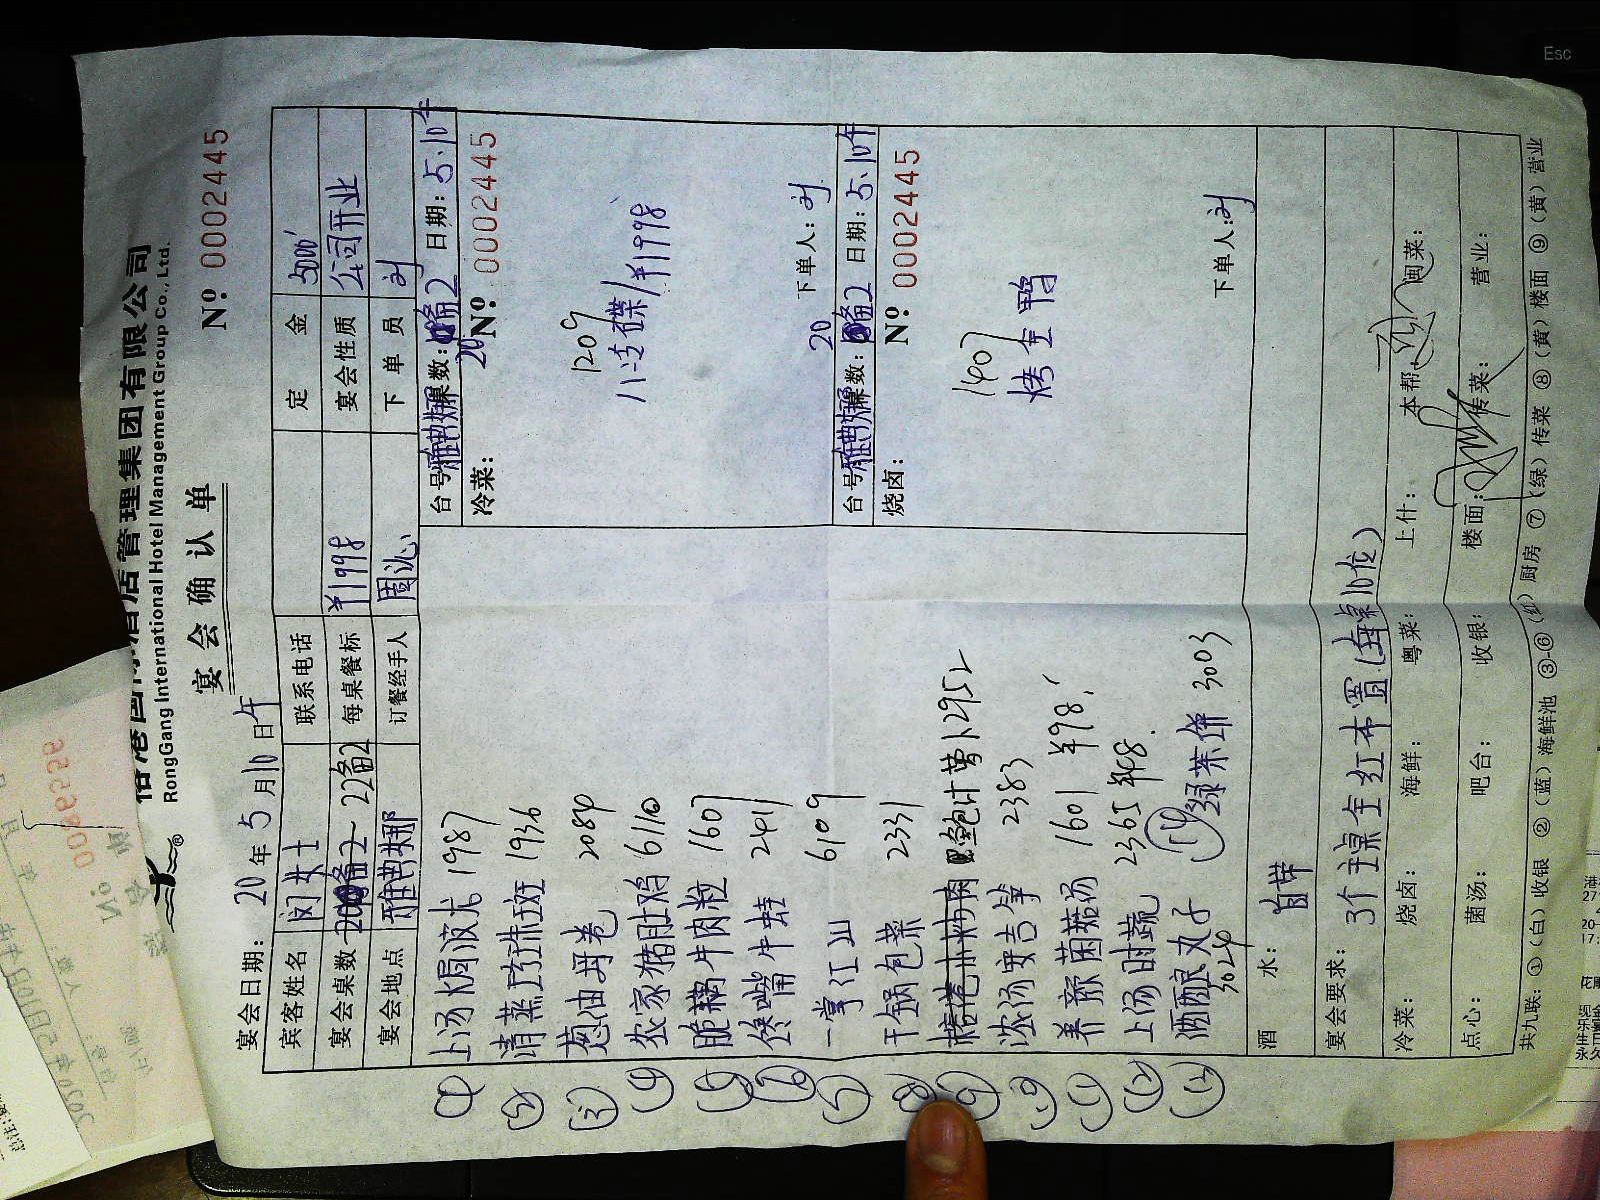 国际酒店管理集团有限公司
RongGang International Hotel Management Group Co., Ltd.
®
宴会确认单
Nº: 0002445
宴会日期: 20 年 5 月 10 日 午
宾客姓名 闵女士 联系电话 定金 5000
宴会桌数 22备2 每桌餐标 ¥1998 宴会性质 公司开业
宴会地点 雅典娜 订餐经手人 周沁 下单员 刘
① 上汤焗波龙 1987
② 清蒸珍珠斑 1936
③ 葱油 卷 2084
④ 农家猪肚鸡 6110
⑤ 脆藕牛肉粒 1607
⑥ 馋嘴牛蛙 2411
⑦ 一掌江山 6109
⑧ 干锅包菜 2331
⑨ 鲍汁萝卜 2952
⑩ 浓汤 笋 2383
⑪ 养颜菌菇汤 1601 ¥98
⑫ 上汤时蔬 2365 ¥48.
⑬ 酒酿丸子 3024
⑭ 绿茶饼 3003
台号: 雅典娜 桌数: 20备2 日期: 5.10午
冷菜: Nº: 0002445
1209
八连碟/¥1998
下单人: 刘
台号: 雅典娜 桌数: 20备2 日期: 5.10午
烧卤: Nº: 0002445
1407
烤全鸭
下单人: 刘
酒水: 自带
宴会要求: 3个主桌全红布置(每桌10位)
冷菜: 烧卤: 海鲜: 粤菜: 上什: 本帮: 闽菜:
点心: 菌汤: 吧台: 收银: 楼面: 传菜: 营业:
共九联: ①(白)收银 ②(蓝)海鲜池 ③-⑥(红)厨房 ⑦(绿)传菜 ⑧(黄)楼面 ⑨(黄)营业
Esc